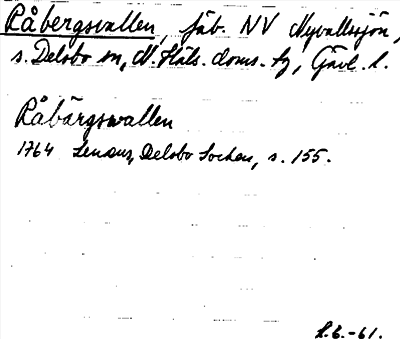 Råbergsvallen, fäb. NV Nyvallssjön,
s. Delsbo sn, N. Häls. doms. tg, Gävl. l.
Råbärgswallen
1764 Lenæus, Delsbo Sochen, s. 155.
L.b.-61.